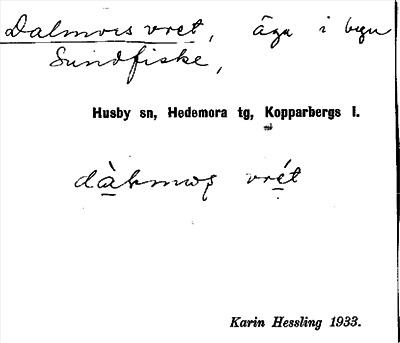 Dalmors vret, äga i byn
Sundfiske,
Husby sn, Hedemora tg, Kopparbergs l.
vrét
Karin Hessling 1933.